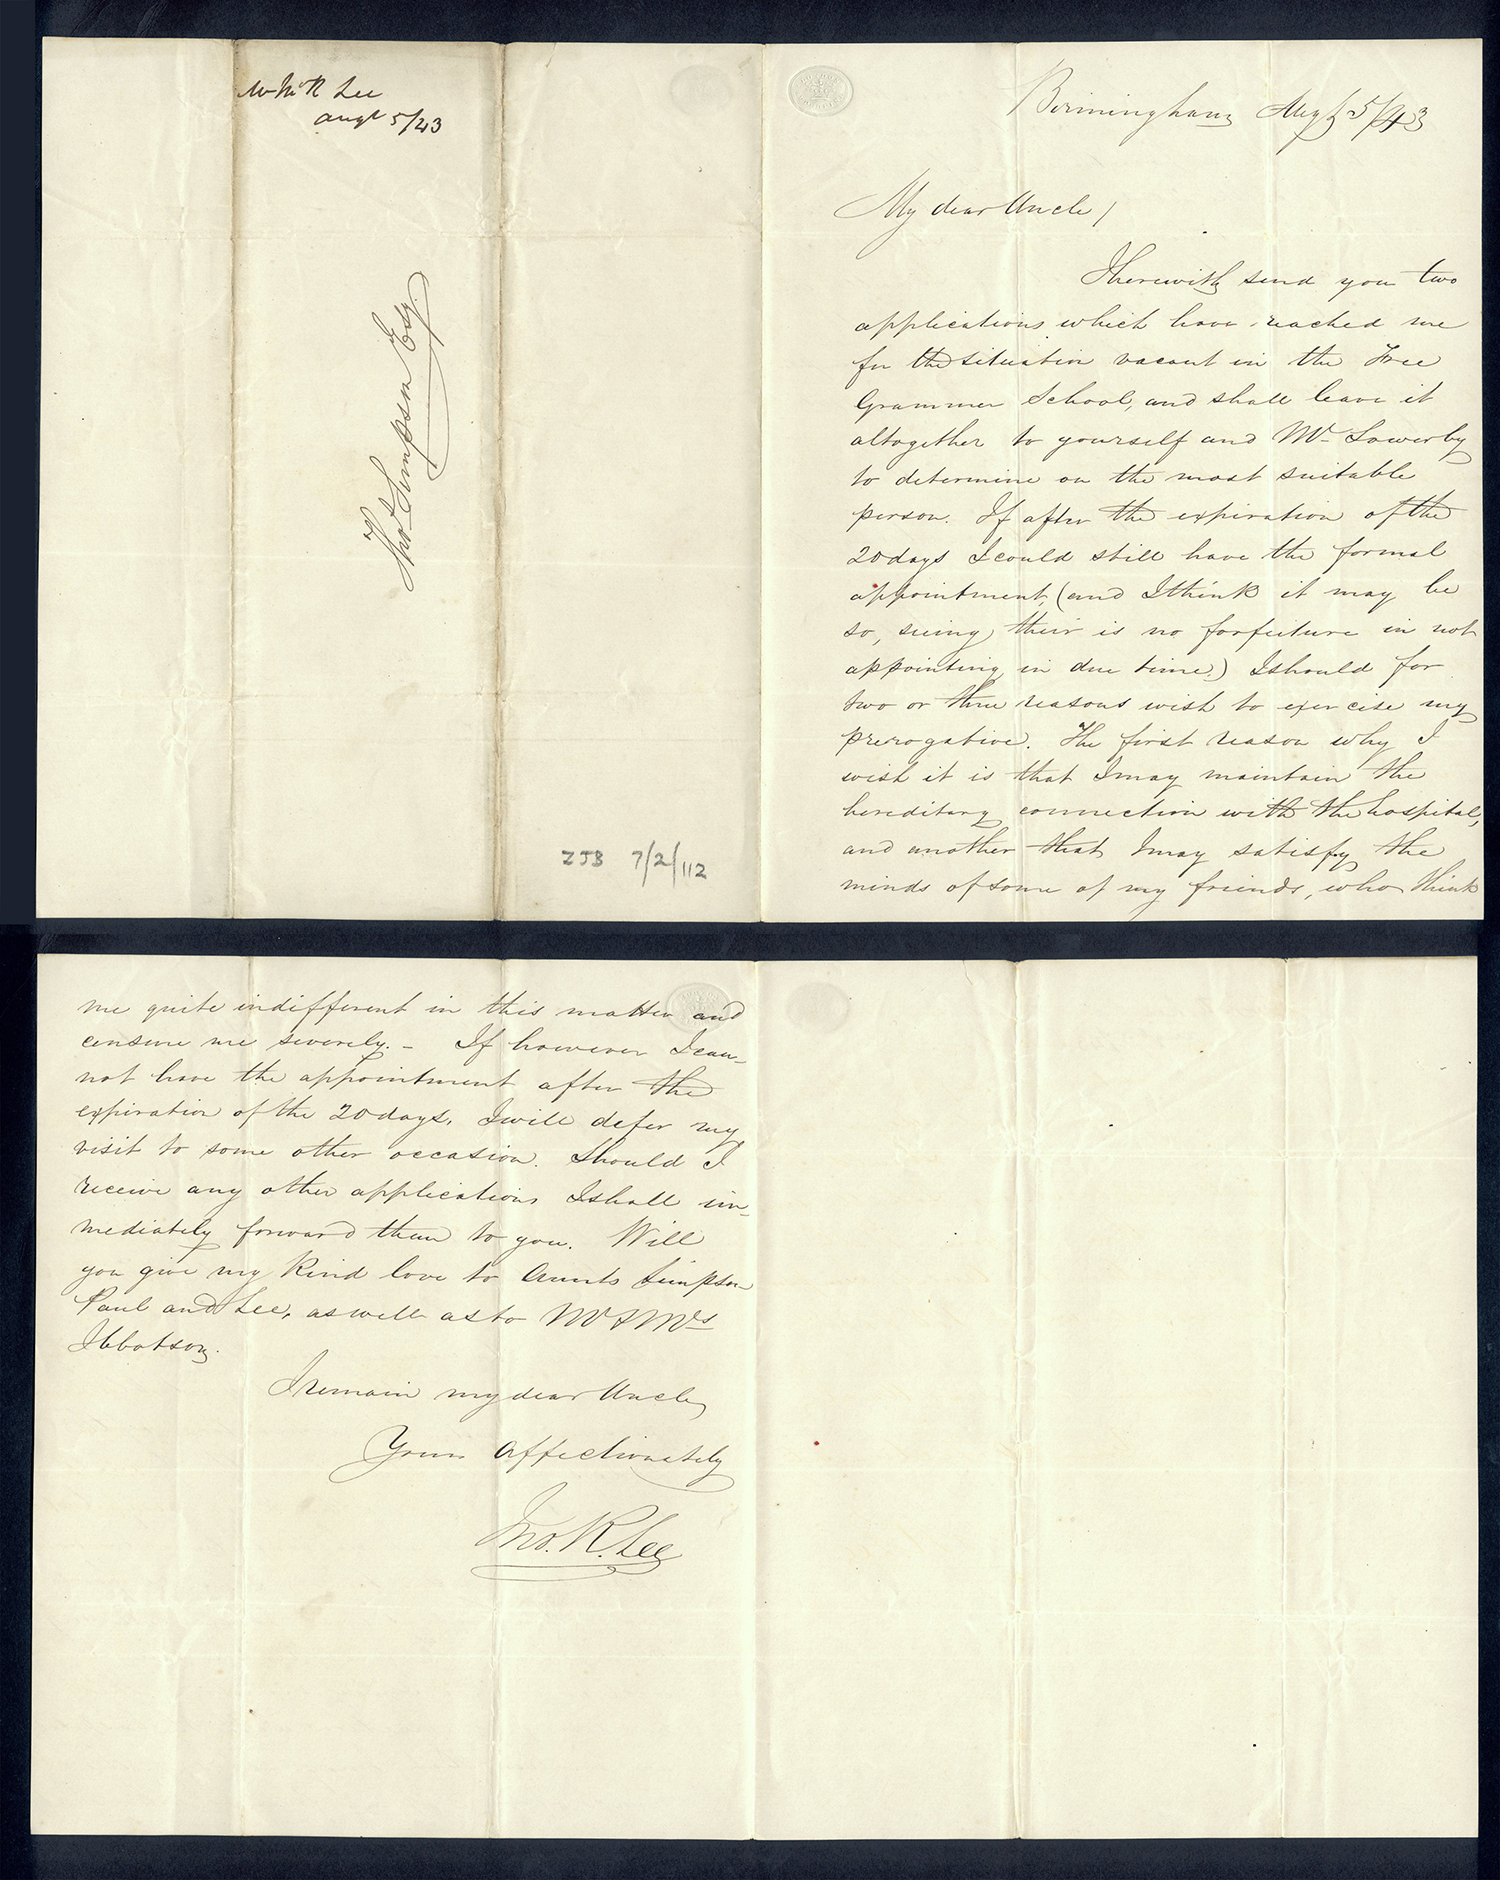 Mr Jno R Lee
Augt 5/43
Thos Simpson Esq.
ZJB 7/2/112
Birmingham Augt 5/43
My dear Uncle /
I herewith send you two
applications which have reached me
for the situation vacant in the Free
Grammer School, and shall leave it
altogether to yourself and Mr Sowerby
to determine on the most suitable
person. If after the expiration of the
20 days I could still have the formal
appointment, (and I think it may be
so, seeing their is no forfeiture in not
appointing in due time.) I should for
two or three reasons wish to exercise my
prerogative. The first reason why I
wish it is that I may maintain the
hereditary connection with the hospital,
and another that I may satisfy the
minds of some of my friends, who think
me quite indifferent in this matter and
censure me severely. - If however I can-
not have the appointment after the
expiration of the 20 days, I will defer my
visit to some other occasion. Should I
receive any other applications I shall im-
mediately forward them to you. Will
you give my kind love to Aunts Simpson
Paul and Lee, as well as to Mr & Mrs
Ibbotson.
I remain my dear Uncle,
Yours affectionately
Jno. R. Lee